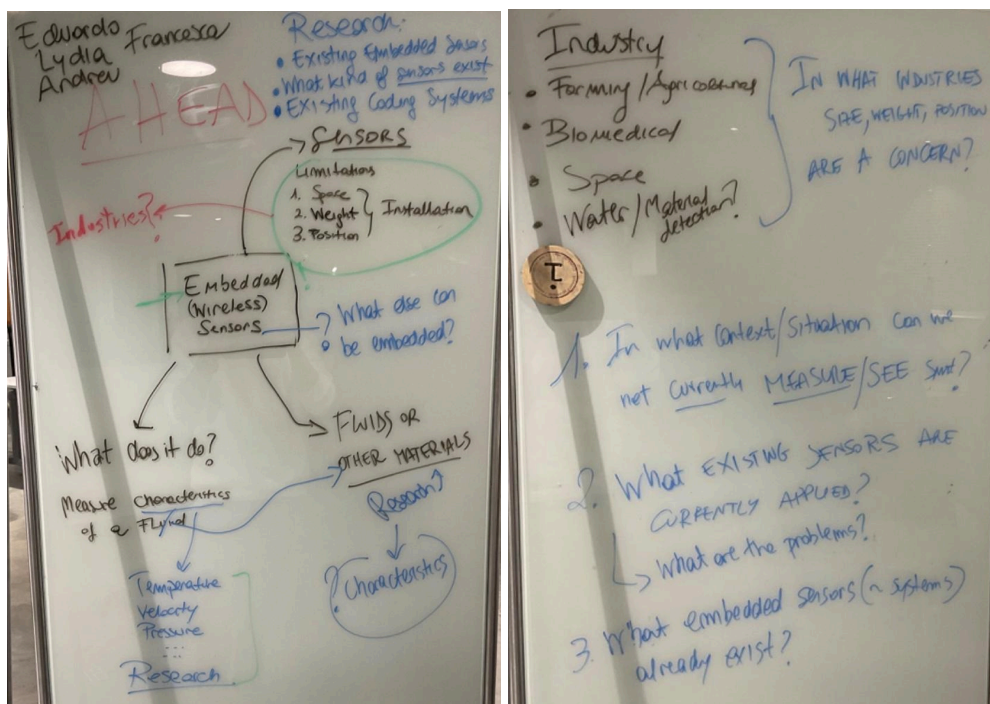 Eduardo Francesca
Lydia
Andreu
AHEAD
Research:
• Existing Embedded Sensors
• What kind of sensors exist
• Existing Coding Systems
SENSORS
Limitations
1. Space
2. Weight } Installation
3. Position
Industries?
Embedded
(Wireless)
Sensors
? What else can
be embedded?
What does it do?
Measure characteristics
of a
Temperature
Velocity
Pressure
...
Research
FLUIDS OR
OTHER MATERIALS
Research
? Characteristics
Industry
• Farming/
• Biomedical
• Space
• Water/Material
detection?
IN WHAT INDUSTRIES
SIZE, WEIGHT, POSITION
ARE A CONCERN?
1. In what context/situation can we
not currently MEASURE/SEE
2. What EXISTING SENSORS ARE
CURRENTLY APPLIED?
What are the problems?
3. What embedded sensors (~ systems)
already exist?